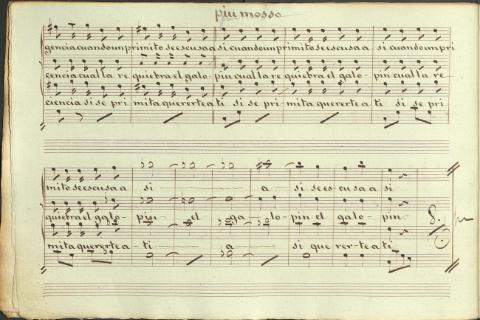 piu mosso
gencia cuando un primito se escusa a si cuando un primito se escusa a si cuando un pri
cencia cual la re quiebra el galo pin cual la re quiebra el galo pin cual la re
ciencia si se pri mita quererte a ti si se pri mita quererte a ti si se pri
mito se escusa a si a si se es cusa a si
quiebra el galo- pin el ga- lo- pin el galo- pin
mita quererte a- ti a si que rer- te a ti